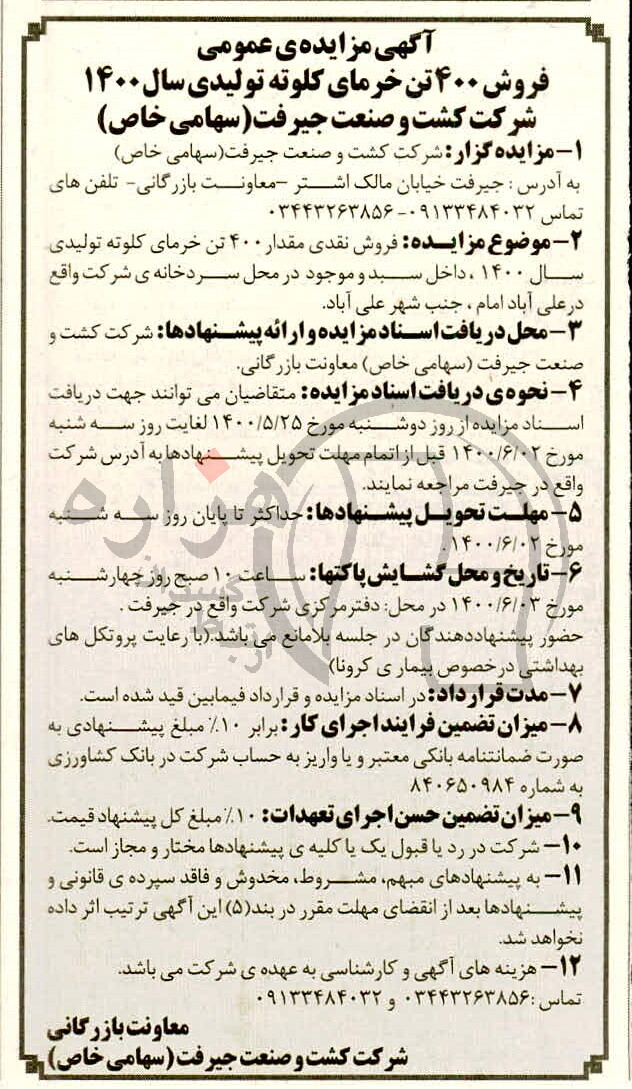 آگهی مزایده‌ی عمومی
فروش ۴۰۰ تن خرمای کلوته تولیدی سال ۱۴۰۰
شرکت کشت و صنعت جیرفت (سهامی خاص)
۱- مزایده گزار: شرکت کشت و صنعت جیرفت(سهامی خاص)
به آدرس: جیرفت خیابان مالک اشتر -معاونت بازرگانی- تلفن های
تماس ۰۹۱۳۳۴۸۴۰۳۲-۰۳۴۴۳۲۶۳۸۵۶
۲- موضوع مزایده: فروش نقدی مقدار ۴۰۰ تن خرمای کلوته تولیدی
سال ۱۴۰۰ ، داخل سبد و موجود در محل سردخانه ی شرکت واقع
در علی آباد امام ، جنب شهر علی آباد.
۳- محل دریافت اسناد مزایده و ارائه پیشنهادها: شرکت کشت و
صنعت جیرفت (سهامی خاص) معاونت بازرگانی.
۴- نحوه‌ی دریافت اسناد مزایده: متقاضیان می توانند جهت دریافت
اسناد مزایده از روز دوشنبه مورخ ۱۴۰۰/۵/۲۵ لغایت روز سه شنبه
مورخ ۱۴۰۰/۶/۰۲ قبل از اتمام مهلت تحویل پیشنهادها به آدرس شرکت
واقع در جیرفت مراجعه نمایند.
۵- مهلت تحویل پیشنهادها: حداکثر تا پایان روز سه شنبه
مورخ ۱۴۰۰/۶/۰۲ .
۶- تاریخ و محل گشایش پاکتها: ساعت ۱۰ صبح روز چهارشنبه
مورخ ۱۴۰۰/۶/۰۳ در محل: دفتر مرکزی شرکت واقع در جیرفت .
حضور پیشنهاددهندگان در جلسه بلامانع می باشد.(با رعایت پروتکل های
بهداشتی در خصوص بیماری کرونا)
۷- مدت قرارداد: در اسناد مزایده و قرارداد فیمابین قید شده است.
۸- میزان تضمین فرایند اجرای کار: برابر ۱۰٪ مبلغ پیشنهادی به
صورت ضمانتنامه بانکی معتبر و یا واریز به حساب شرکت در بانک کشاورزی
به شماره ۸۴۰۶۵۰۹۸۴
۹- میزان تضمین حسن اجرای تعهدات: ۱۰٪ مبلغ کل پیشنهاد قیمت.
۱۰- شرکت در رد یا قبول یک یا کلیه ی پیشنهادها مختار و مجاز است.
۱۱- به پیشنهادهای مبهم، مشروط، مخدوش و فاقد سپرده ی قانونی و
پیشنهادها بعد از انقضای مهلت مقرر در بند(۵) این آگهی ترتیب اثر داده
نخواهد شد.
۱۲- هزینه های آگهی و کارشناسی به عهده ی شرکت می باشد.
تماس: ۰۳۴۴۳۲۶۳۸۵۶ و ۰۹۱۳۳۴۸۴۰۳۲
معاونت بازرگانی
شرکت کشت و صنعت جیرفت (سهامی خاص)
هزاره